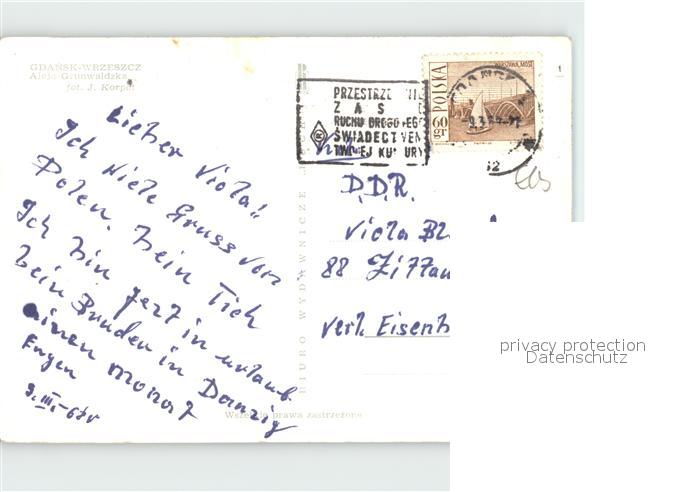 GDAŃSK-WRZESZCZ
Aleja Grunwaldzka
fot. J. Korpal
Lieber Viola!!
Ich viele Gruss von
Polen. Dein Tich
Ich bin jezt in urlaub
bein Bruder in Danzig
einen monat
Eugen
9.III.-67r
BIURO WYDAWNICZE
Wszelkie prawa zastrzeżone
PRZESTRZE NIE
ZAS
RUCHU DROGOWEGO
ŚWIADECTWEM
TWOJEJ KULTURY
WARSZAWA, MOST
POLSKA
60 GR
D.D.R.
Viola Bl
88 Zittau
verl. Eisenb
privacy protection
Datenschutz